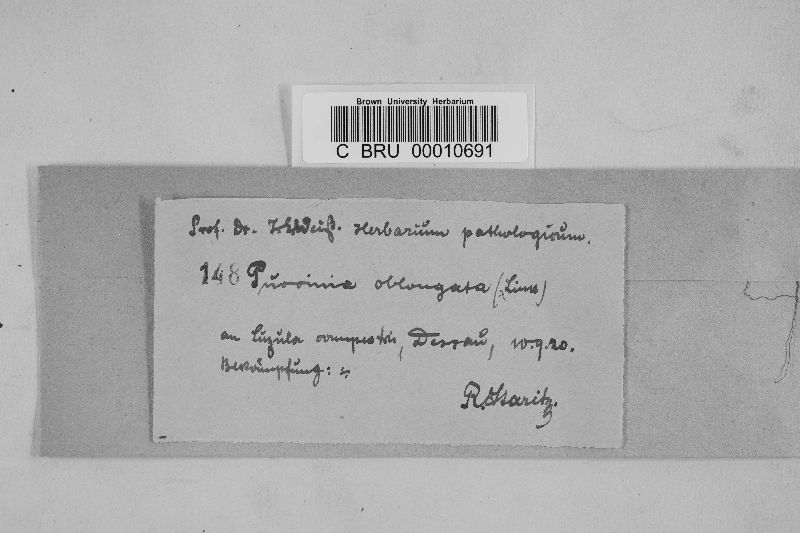 Brown University Herbarium
C BRU 00010691
Prof. Dr. Herbarium pathologicum.
148 Puccinia oblongata (Link)
an Luzula campestris, Dessau, 10.9.20.
Bekämpfung:
R. Staritz.